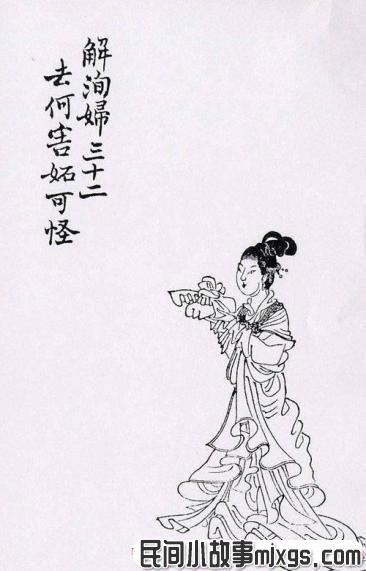 解洵婦三十二
去何害妬可怪
民间小故事mixgs.com